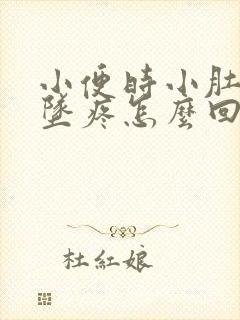 小便時小肚
墜疼怎麼回
杜紅娘